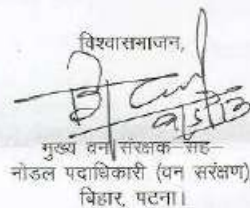 विश्वासभाजन,
मुख्य वन संरक्षक-सह-
नोडल पदाधिकारी (वन सरंक्षण)
बिहार, पटना।